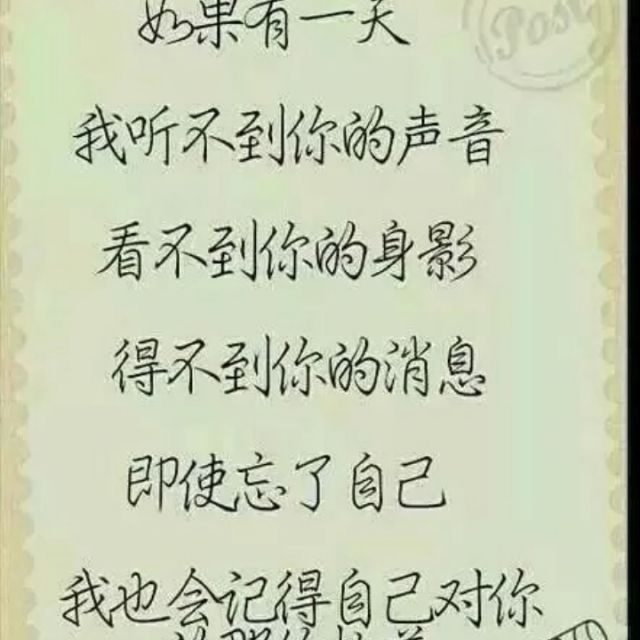 Post
如果有一天
我听不到你的声音
看不到你的身影
得不到你的消息
即使忘了自己
我也会记得自己对你